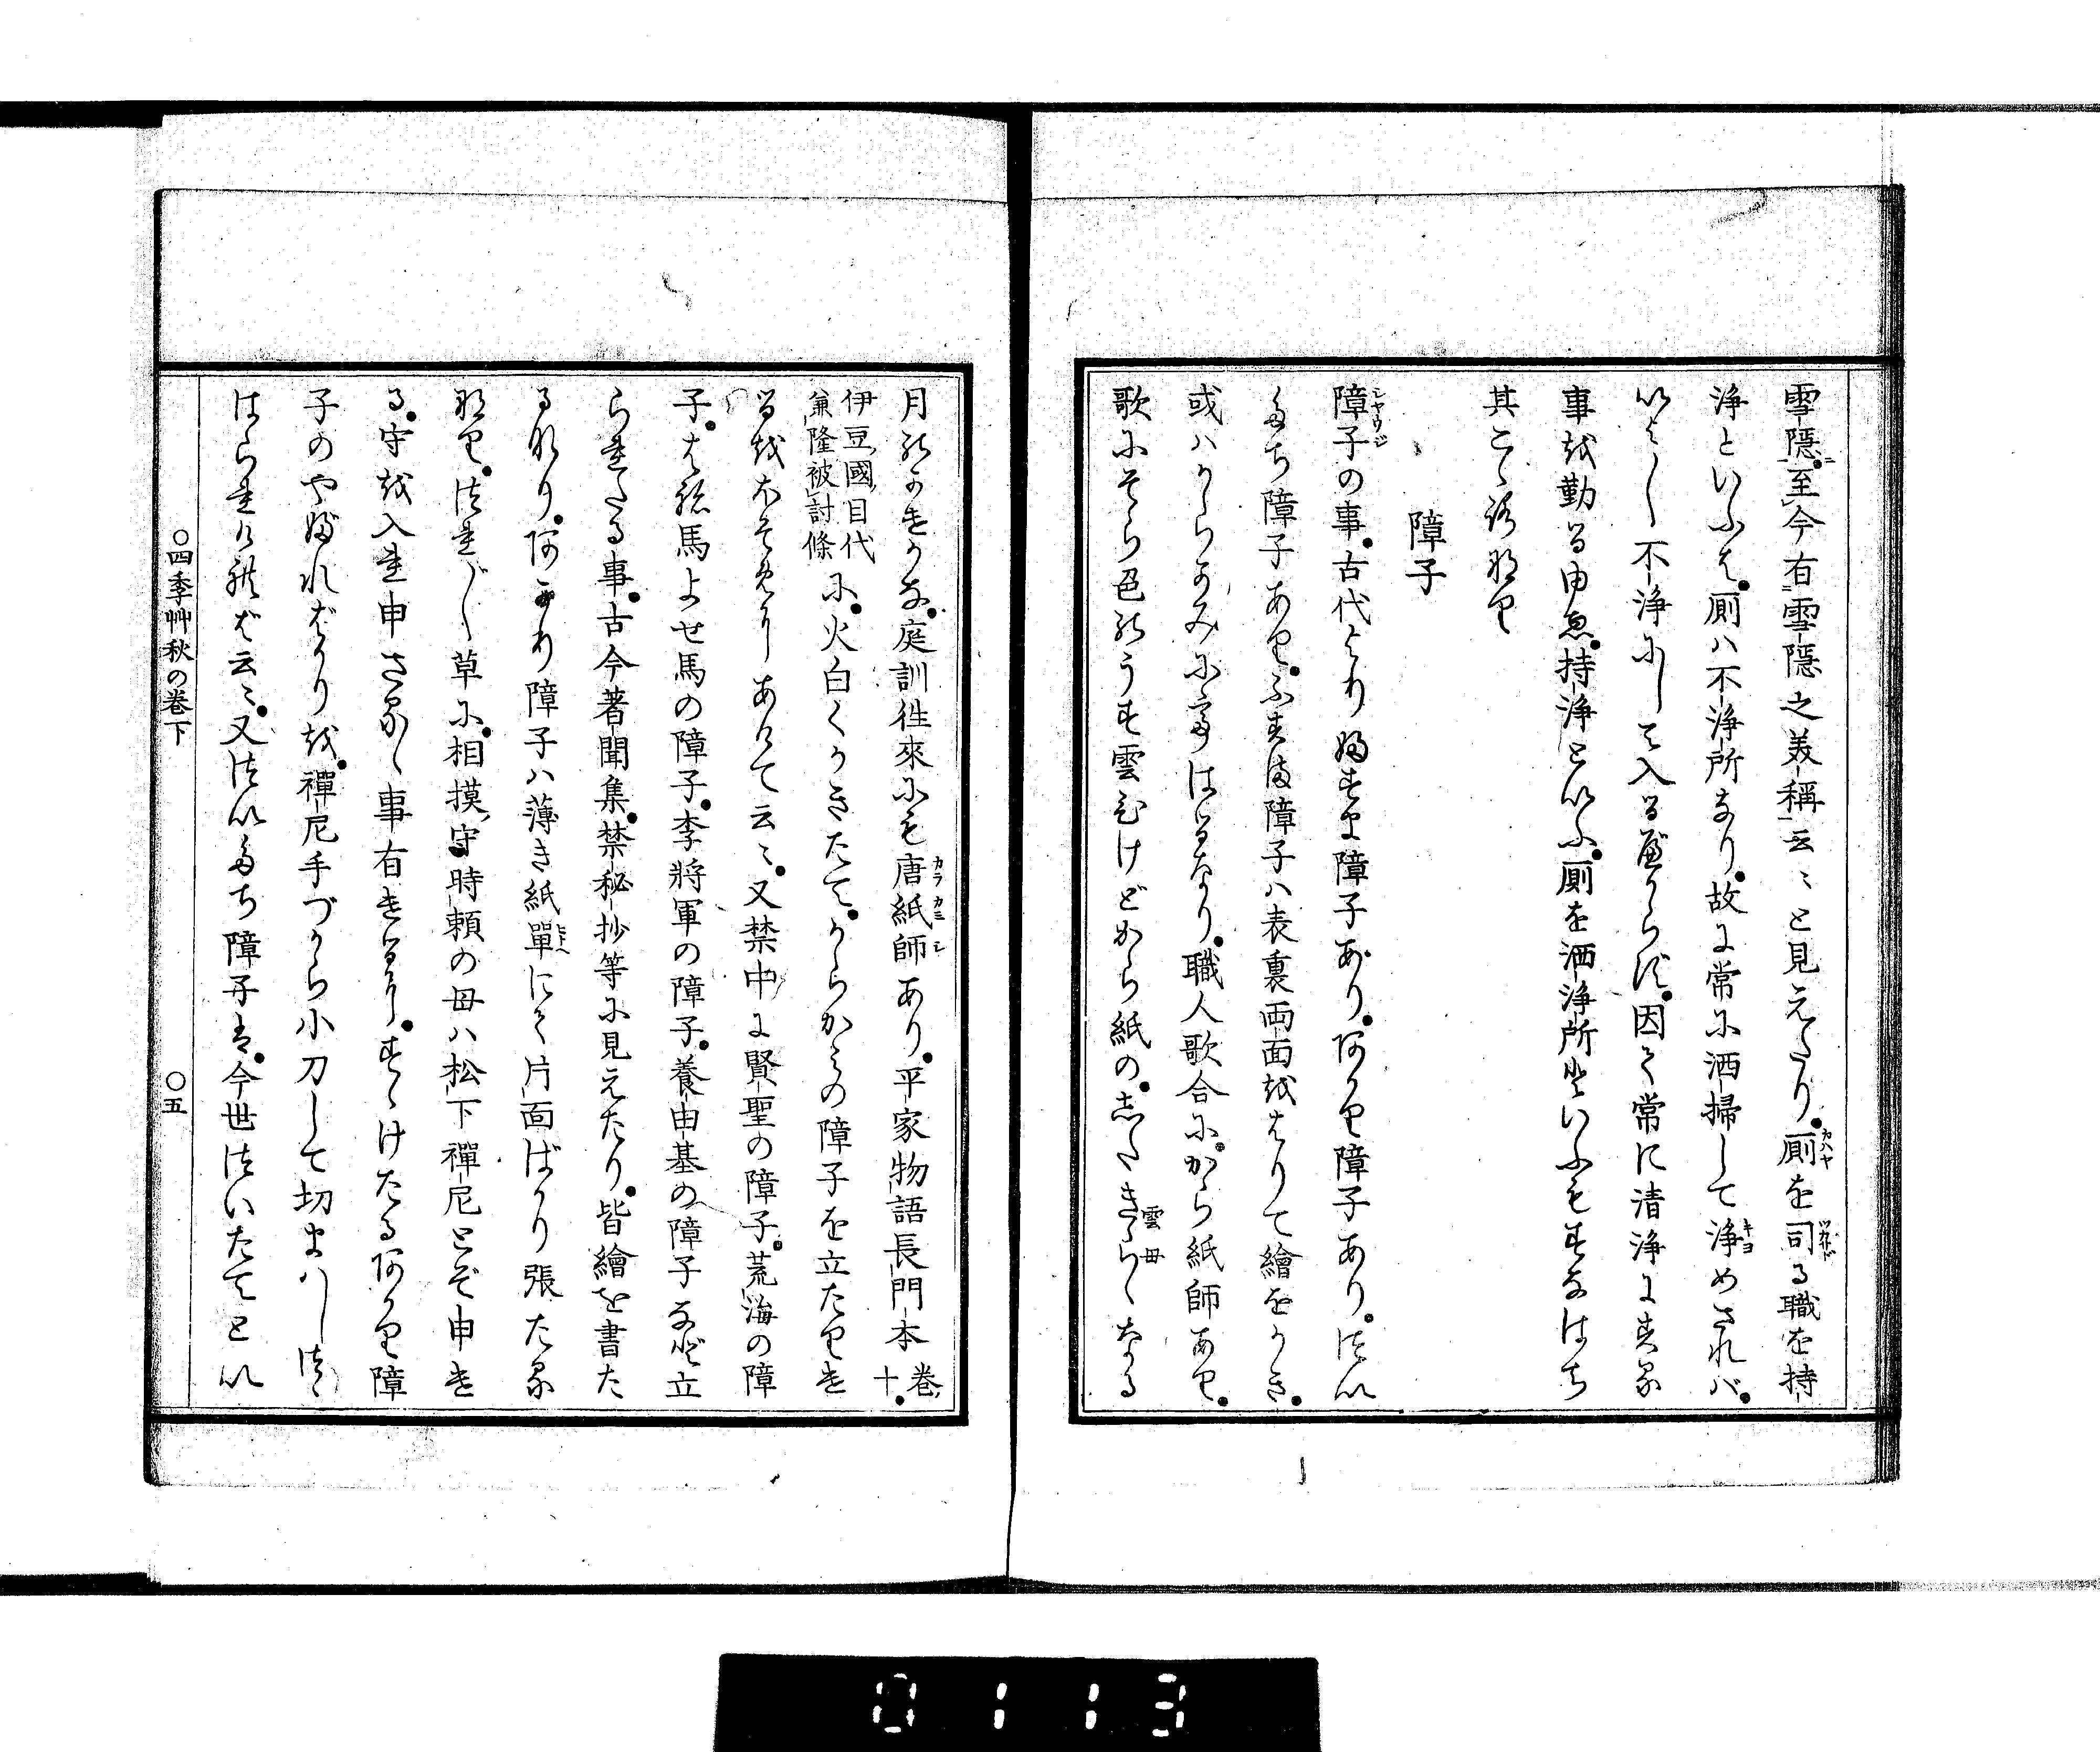 雪隱至今有雪隱之美稱云〻と見えたり。厠を司る職を持
浄といふは。厠ハ不浄所なり。故に常に洒掃して浄めされバ。
いとゝ不浄にして入るべからず。因て常に清浄にする
事を勤るゆゑ。持浄といふ。厠を洒浄所といふもすなはち
其こゝろなり
障子
障子の事。古代よりふすま障子あり。あかり障子あり。つい
たち障子あり。ふすま障子ハ表裏両面をはりて繪をかき。
或ハからかみにて はるなり。職人歌合に。から紙師あり。
歌にそら色のうす雲ひけどから紙の。したきらゝなる
月のかけかな。庭訓往來にも唐紙師あり。平家物語長門本巻十。
伊豆國目代兼隆被討條に。火白くかきたて。からかみの障子を立たりけ
るをほそめにあけて云〻。又禁中に賢聖の障子。荒海の障
子。はね馬よせ馬の障子。李將軍の障子。養由基の障子など立
られたる事。古今著聞集。禁秘抄等に見えたり。皆繪を書た
るなり。あかり障子ハ薄き紙單にて片面ばかり張たる
なり。つれ〲草に。相摸守時頼の母ハ松下禪尼とぞ申け
る。守を入れ申さるゝ事有けるに。すゝけたるあかり障
子のやぶれバかりを。禪尼手づから小刀して切まハしつゝ
はられけれバ云〻。又ついたち障子は。今世ついたてとい
○四季艸秋の巻下
○五
0113